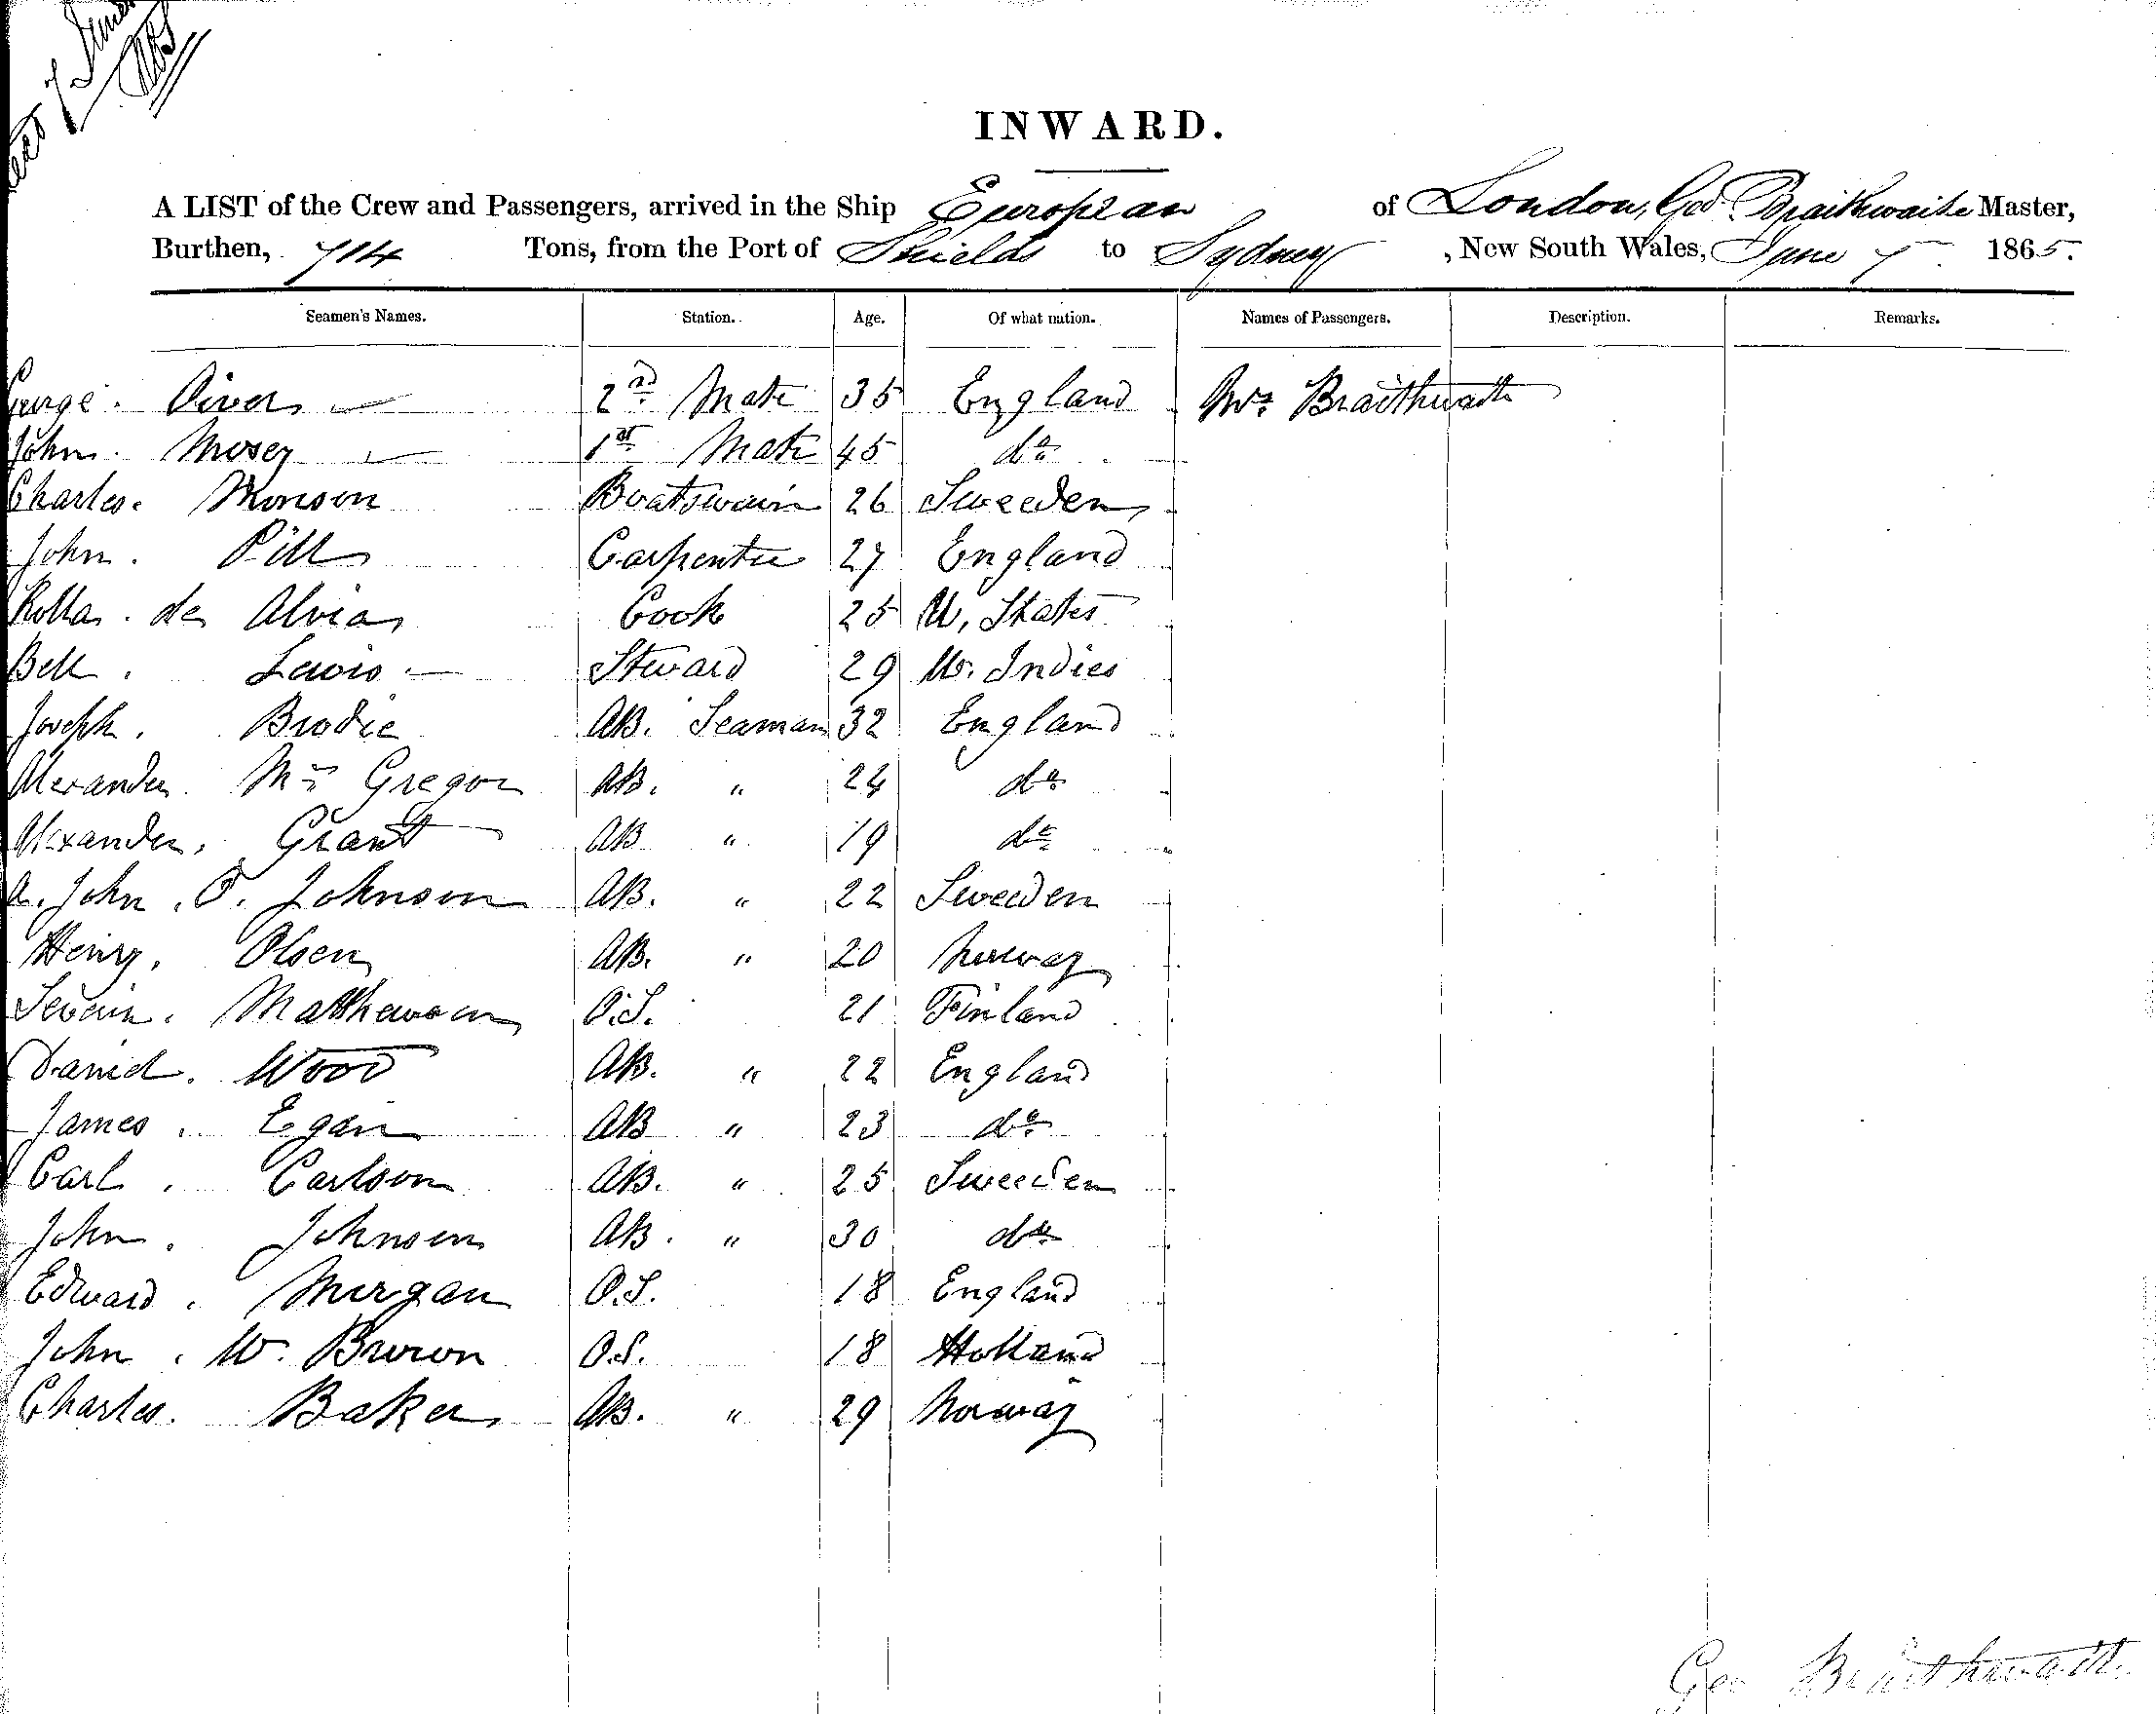 INWARD.
A LIST of the Crew and Passengers, arrived in the Ship European of London, Geo Braithwaite Master,
Burthen, 714 Tons, from the Port of Shields to Sydney, New South Wales, June 7 1865.
Seamen's Names. Station. Age. Of what nation. Names of Passengers. Description. Remarks.
George. 2nd Mate 35 England Mrs Braithwaite
John. Mosey 1st Mate 45 do
Charles. Monson Boatswain 26 Sweeden
John. Pill Carpenter 27 England
de Alvia Cook 25 U. States
Bell. Lewis Steward 29 W. Indies
Joseph. Brodie AB. Seaman 32 England
Alexander. Mc Gregor AB. " 24 do
Alexander. Grant AB " 19 do
A. John. O. Johnson AB. " 22 Sweeden
Henry. Olsen AB. " 20 Norway
Matthewson O.S. 21 Finland
David. Wood AB. " 22 England
James. Egan AB " 23 do
Carl. Carlson AB. " 25 Sweeden
John. Johnson AB. " 30 do
Edward. Morgan O.S. 18 England
John. W. Brown O.S. 18 Holland
Charles. Baker AB. " 29 Norway
Geo Braithwaite